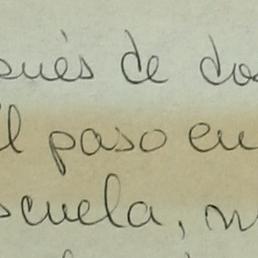 pués de dos
l paso en
scuela, m